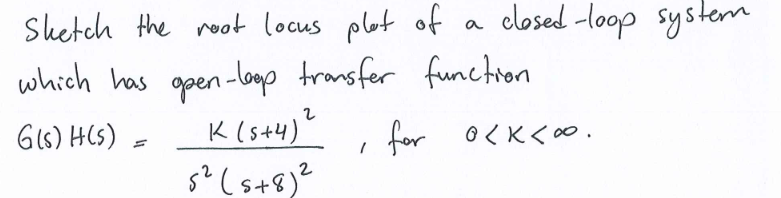 Sketch the root locus plot of a closed-loop system
which has open-loop transfer function
G(s) H(s) = K (s+4)² / s² (s+8)² , for 0<K<∞.